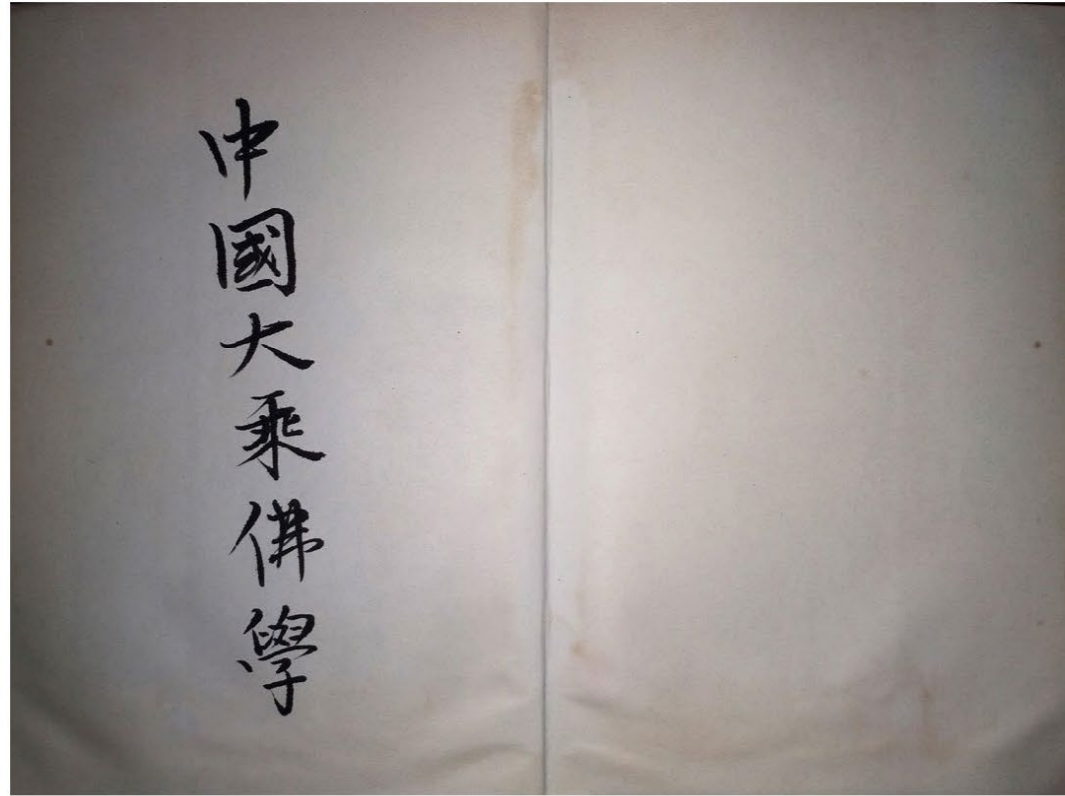 中國大乘佛學